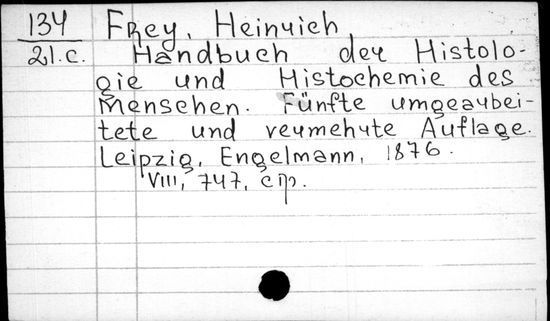 134 Frey, Heinrich
21.c. Handbuch der Histolo-
gie und Histochemie des
Menschen. Fünfte umgearbei-
tete und vermehrte Auflage.
Leipzig, Engelmann, 1876.
VIII, 747, стр.